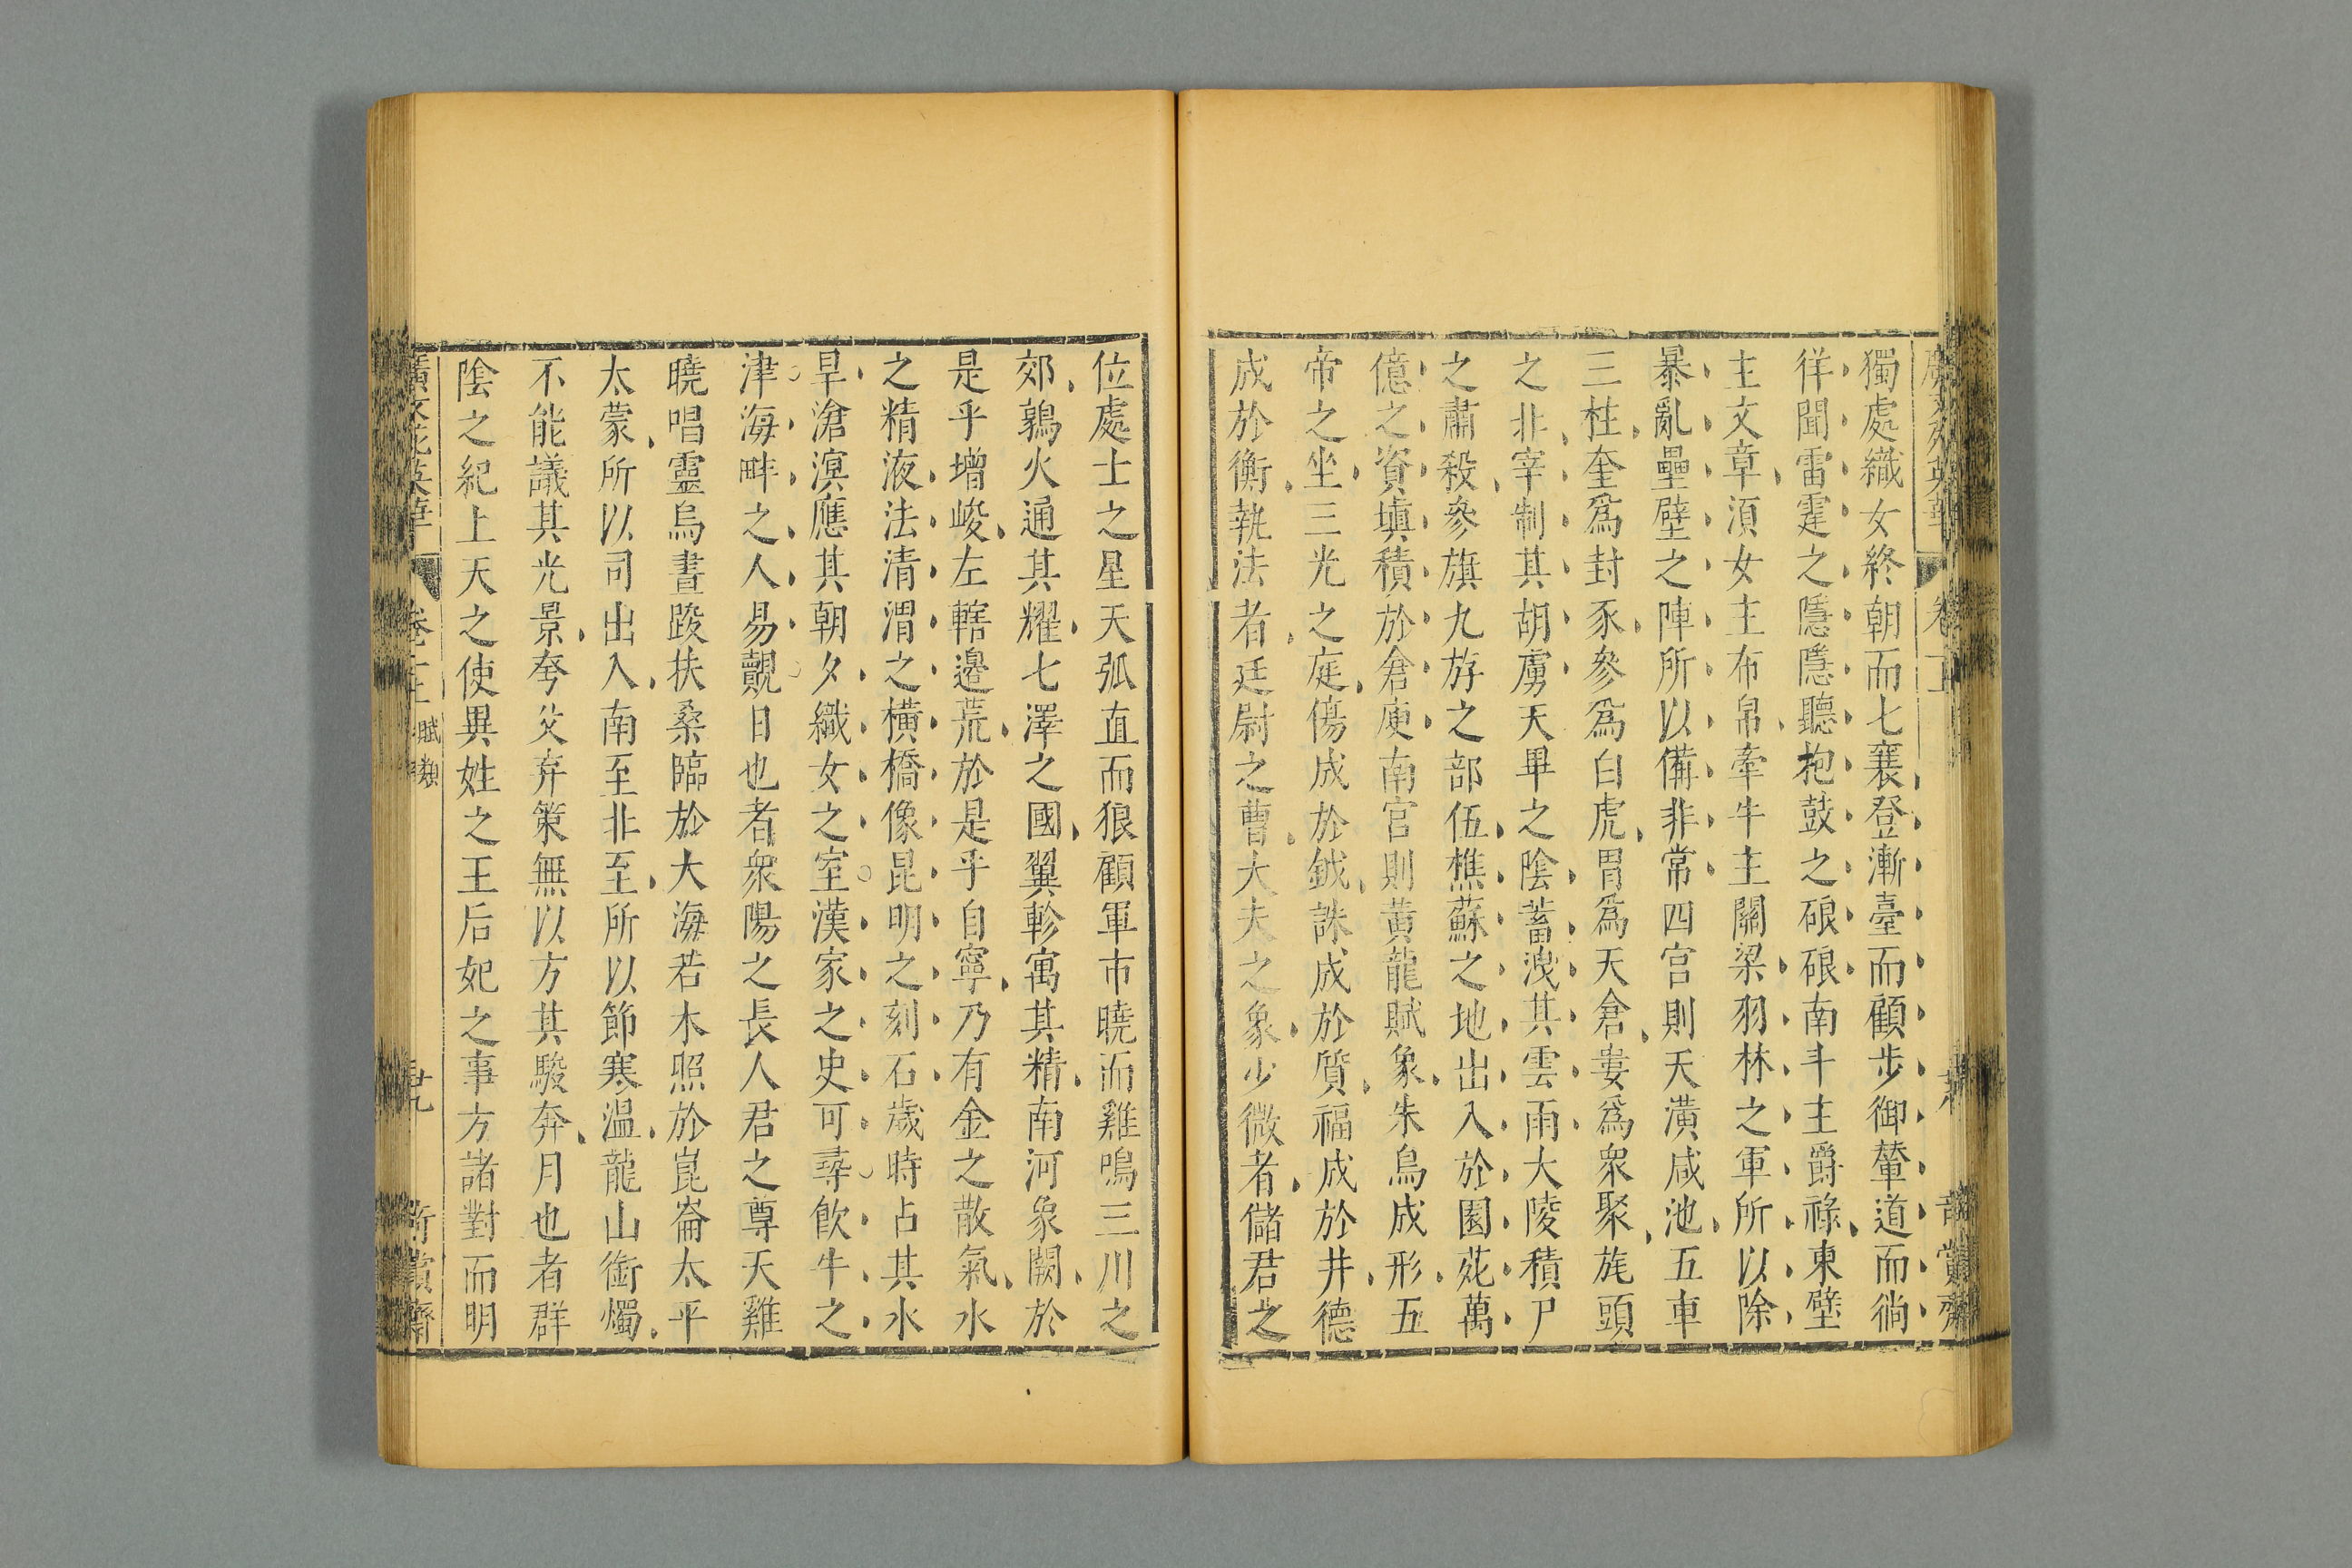 獨處織女終朝而七襄登漸臺而顧步御輦道而徜
徉聞雷霆之隱隱聽抱鼓之硠硠南斗主爵祿東壁
主文章湏女主布帛牽牛主關梁羽林之軍所以除
暴亂壘壁之陣所以備非常四宫則天潢咸池五車
三柱奎爲封豕參爲白虎胃爲天倉婁爲衆聚旄頭
之北宰制其胡虜天畢之陰蓄洩其雲雨大陵積尸
之肅殺參旗九斿之部伍樵蘇之地出入於園苑萬
億之資塡積於倉庾南宫則黄龍賦象朱鳥成形五
帝之坐三光之庭傷成於鉞誅成於質福成於井德
成於衡執法者廷尉之曹大夫之象少微者儲君之
位處士之星天弧直而狼顧軍市曉而雞鳴三川之
郊鶉火通其耀七澤之國翼軫寓其精南河象闕於
是乎增峻左轄邉荒於是乎自寧乃有金之散氣水
之精液法清渭之横橋像昆明之刻石歲時占其水
旱滄溟應其朝夕織女之室漢家之史可尋飮牛之
津海畔之人易覿日也者衆陽之長人君之尊天雞
曉唱靈烏晝踆扶桑臨於大海若木照於崑崙太平
太蒙所以司出入南至北至所以節寒温龍山銜燭
不能議其光景夸父弃策無以方其駿奔月也者群
陰之紀上天之使異姓之王后妃之事方諸對而明
廣文苑英華 卷 賦類